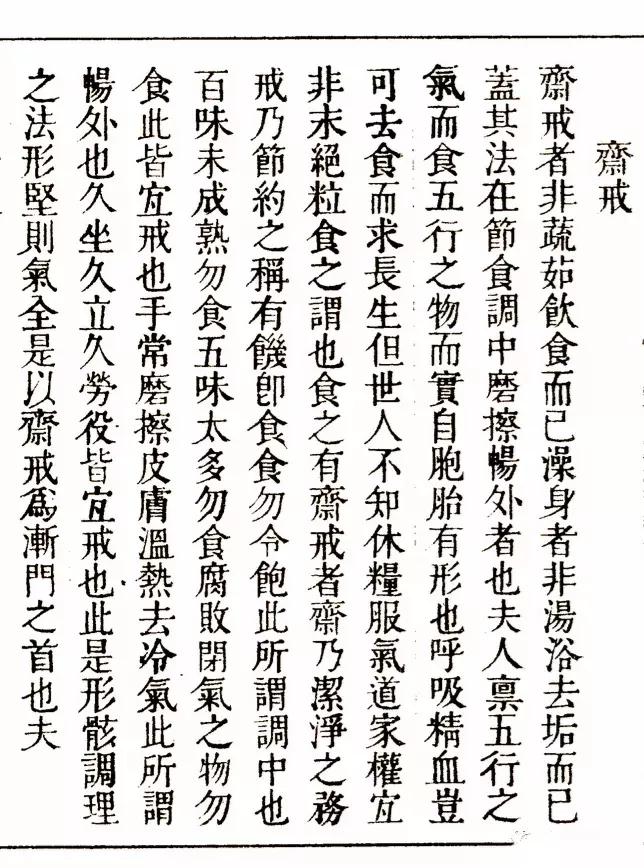 齋戒
齋戒者非蔬茹飲食而已澡身者非湯浴去垢而已
蓋其法在節食調中磨擦暢外者也夫人禀五行之
氣而食五行之物而實自胞胎有形也呼吸精血豈
可去食而求長生但世人不知休糧服氣道家權宜
非末絕粒食之謂也食之有齋戒者齋乃潔淨之務
戒乃節約之稱有饑卽食食勿令飽此所謂調中也
百味未成熟勿食五味太多勿食腐敗閉氣之物勿
食此皆宜戒也手常磨擦皮膚溫熱去冷氣此所謂
暢外也久坐久立久勞役皆宜戒也此是形骸調理
之法形堅則氣全是以齋戒爲漸門之首也夫